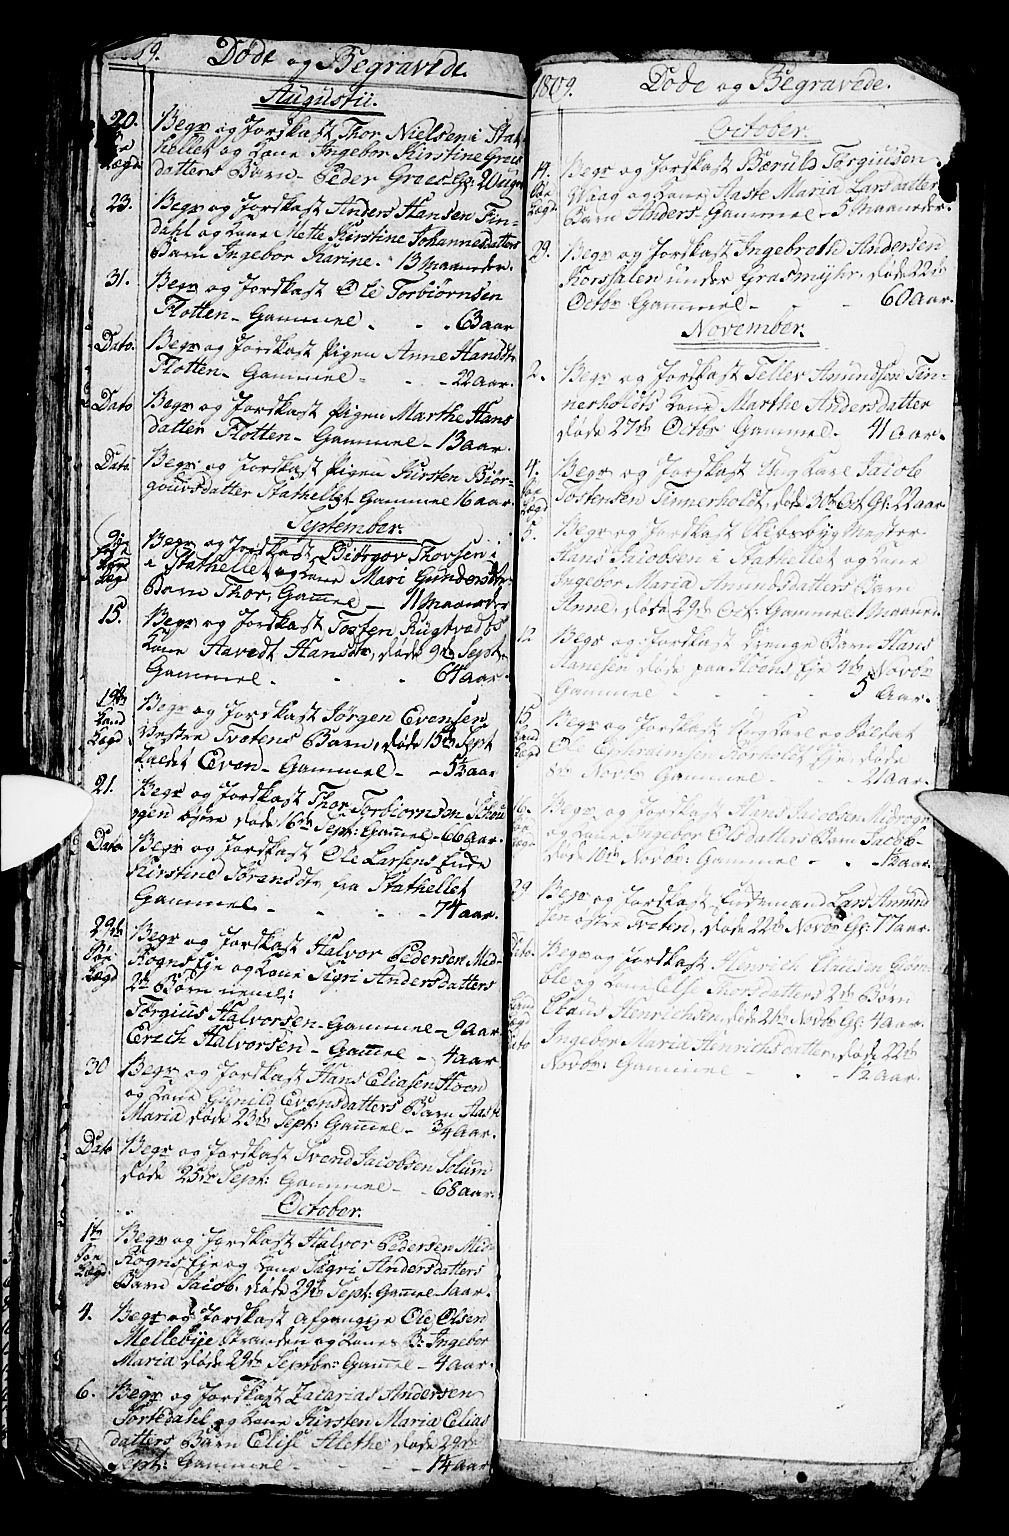 1809. Døde og Begravede.
Augustii.
20. Begr og Jordkast Thor Nielsen i Stat
Søe hellet og Kone Ingebor Kirstine Grees
Lægd datters Barn - Peder Grees - Gl: 20 uger
23. Begr og Jordkast Anders Hansen Fin-
dahl og Kone Mette Kirstine Johannesdatters
Barn Ingebor Karine. 13 Maaneder.
31. Begr og Jordkast Ole Torbiørnsen
Flotten - Gammel - 63 aar
Dato. Begr og Jordkast Pigen Anne Hansdtr
Flotten - Gammel - 22 aar.
Dato Begr og Jordkast Pigen Marthe Hans
datter Flotten - Gammel - 13 aar.
Dato Begr og Jordkast Pigen Kirsten Biør-
gouvsdatter Stathellet - Gammel 16 aar.
September.
9de Begr og Jordkast Biørgov Thorsen i
i Stathellet og Kone Mari Gundersdtr
Lægd Barn Thor, Gamel - 11 Maaneder
15. Begr og Jordkast Tosten Rugtvedts
Kone Havedt Hansdtr, døde 9de Sept.
Gammel - 64 aar.
19de Begr og Jordkast Jørgen Evensen
Land Vestre Tvetens Barn, døde 15de Sept
Lægd kaldet Even - Gammel - 5½ aar
21. Begr og Jordkast Thor Torbiørnsen Schou
ggen døde 16de Sept: Gamel - 66 aar.
Dato Begr og Jordkast Ole Larsens Enke
Kirstine Sørensdtr fra Stathellet
Gammel - 74 aar.
23de Begr og Jordkast Halvor Pedersen Mid-
Søe Rogns Eje og Kone Sigri Andersdatters
Lægd 2de Børn neml:
Torgius Halvorsen - Gammel - 9 aar
Erich Halvorsen - Gamel - 4 aar
30 Begr og Jordkast Hans Eliasen Hoen
og Kone Gunild Evensdatters Barn Aaste
Maria døde 23de Sept: Gamel - ¾ aar.
Dato Begr og Jordkast Svend Jacobsen Solum
døde 25de Sept: Gammel - 68 aar.
October.
1te Begr og Jordkast Halvor Pedersen Mid-
Søe Rogns Eje og Kone Sigri Andersdatters
Lægd. Barn Jacob. døde 29de Sept: Gamel - 1 aar.
4. Begr og Jordkast afgangne Ole Olsen
Mellebye Stranden og Kones B: Ingebor
Maria døde 29de Septbr: Gamel - 4 aar.
6. Begr og Jordkast Zacarias Andersen
Tortedahl og Kone Kirsten Maria Elias
datters Barn Elise Alethe døde 29de
Sept: Gammel - 1¼ aar.
1809. Døde og Begravede.
October.
14. Begr og Jordkast Bæruld Torgiusen
Søe Waag og Kone Aaste Maria Larsdatter
Lægd Barn Anders Gammel - 5 Maaneder.
29. Begr og Jordkast Ingebreth Andersen
Korssalen under Grasmyhr. døde 22de
Octbr Gammel - 60 aar.
November.
2. Begr og Jordkast Tellev Amundsen Tin-
nerholdts Kone Marthe Andersdatter
døde 27de Octbr Gammel - 41 aar.
4. Begr og Jordkast Ung Karl Jacob
Søe Tostensen Tinnerholdt, døde 30te Oct Gl: 22 aar
Lægd
5. Begr og Jordkast Skibsbyg Mester
Hans Jacobsen i Stathellet og Kone
Ingebor Maria Amundsdatters Barn
Anne, døde 29de Oct: Gammel 1 Maaned.
12 Begr og Jordkast Drenge Barn Hans
Hansen døde paa Hoens Eje 4de Novbr
Gammel - 5 Aar.
15. Begr og Jordkast Ung Karl og Soldat
Land Ole Ephraimsen Tinholdt Eje, døde
Lægd Novbr Gammel - 21 Aar.
16. Begr og Jordkast Hans Jacobsen Midrogn
Søe og Kone Ingebor Elsdatters Barn Jacob
Lægd døde 10de Novbr: Gammel - 1½ aar.
29 Begr og Jordkast Enkemand Lars Amund
sen østre Tveten, døde 22de Novbr Gl: 77 aar.
Dito. Begr og Jordkast Henrich Clausen Grøm-
ble og Kone Else Thorsdatters 2de Børn
Land Claus Henrichsen, døde 21de Novbr Gl: 4 aar.
Lægd Ingebor Maria Henrichsdatter, døde 22de
Dato Novbr: Gammel - 1½ aar.